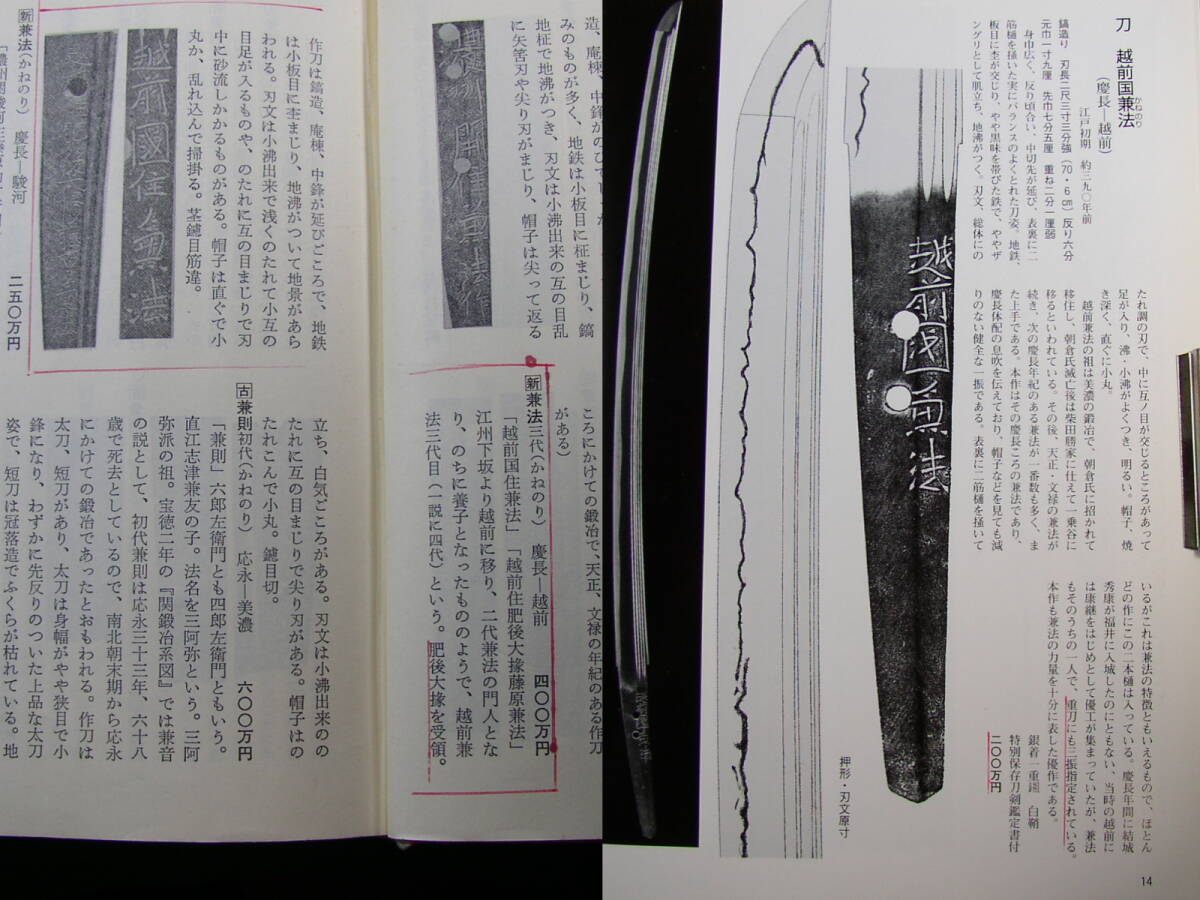 刀 越前国兼法
かねのり
(慶長―越前)
江戸初期 約三九〇年前
鎬造り 刃長二尺三寸三分強(70・6㎝) 反り六分
元巾一寸九厘 先巾七分五厘 重ね二分一厘弱
身巾広く、反り頃合い、中切先が延び、表裏に二
筋樋を掻いた実にバランスのよくとれた刀姿。地鉄、
板目に杢が交じり、やや黒味を帯びた鉄で、ややザ
ングリとして肌立ち、地沸がつく。刃文、総体にの
たれ調の刃で、中に互ノ目が交じるところがあって
足が入り、沸・小沸がよくつき、明るい。帽子、焼
き深く、直ぐに小丸。
越前兼法の祖は美濃の鍛冶で、朝倉氏に招かれて
移住し、朝倉氏滅亡後は柴田勝家に仕えて一乗谷に
移るといわれている。その後、天正・文禄の兼法が
続き、次の慶長年紀のある兼法が一番数も多く、ま
た上手である。本作はその慶長ころの兼法であり、
慶長体配の息吹を伝えており、帽子などを見ても減
りのない健全な一振である。表裏に二筋樋を掻いて
いるがこれは兼法の特徴ともいえるもので、ほとん
どの作にこの二本樋は入っている。慶長年間に結城
秀康が福井に入城したのにともない、当時の越前に
は康継をはじめとして優工が集まっていたが、兼法
もそのうちの一人で、重刀にも三振指定されている。
本作も兼法の力量を十分に表した優作である。
銀着一重鎺 白鞘
特別保存刀剣鑑定書付
二〇〇万円
越前國兼法
押形・刃文原寸
14
造、庵棟、中鋒がのびてし
みのものが多く、地鉄は小板目に柾まじり、鎬
地柾で地沸がつき、刃文は小沸出来の互の目乱
に矢筈刃や尖り刃がまじり、帽子は尖って返る
濃州関住兼法作
作刀は鎬造、庵棟、中鋒が延びごころで、地鉄
は小板目に杢まじり、地沸がついて地景があら
われる。刃文は小沸出来で浅くのたれて小互の
目足が入るものや、のたれに互の目まじりで刃
中に砂流しかかるものがある。帽子は直ぐで小
丸か、乱れ込んで掃掛る。茎鑢目筋違。
越前國住兼法
新 兼法(かねのり) 慶長―駿河
二五〇万円
ころにかけての鍛冶で、天正、文禄の年紀のある作刀
がある)
新 兼法三代(かねのり) 慶長―越前 四〇〇万円
「越前国住兼法」「越前住肥後大掾藤原兼法」
江州下坂より越前に移り、二代兼法の門人とな
り、のちに養子となったもののようで、越前兼
法三代目(一説に四代)という。肥後大掾を受領。
立ち、白気ごころがある。刃文は小沸出来のの
たれに互の目まじりで尖り刃がある。帽子はの
たれこんで小丸。鑢目切。
古 兼則初代(かねのり) 応永―美濃 六〇〇万円
「兼則」六郎左衛門とも四郎左衛門ともいう。
直江志津兼友の子。法名を三阿弥という。三阿
弥派の祖。宝徳二年の『関鍛冶系図』では兼音
の説として、初代兼則は応永三十三年、六十八
歳で死去としているので、南北朝末期から応永
にかけての鍛冶であったとおもわれる。作刀は
太刀、短刀があり、太刀は身幅がやや狭目で小
鋒になり、わずかに先反りのついた上品な太刀
姿で、短刀は冠落造でふくらが枯れている。地